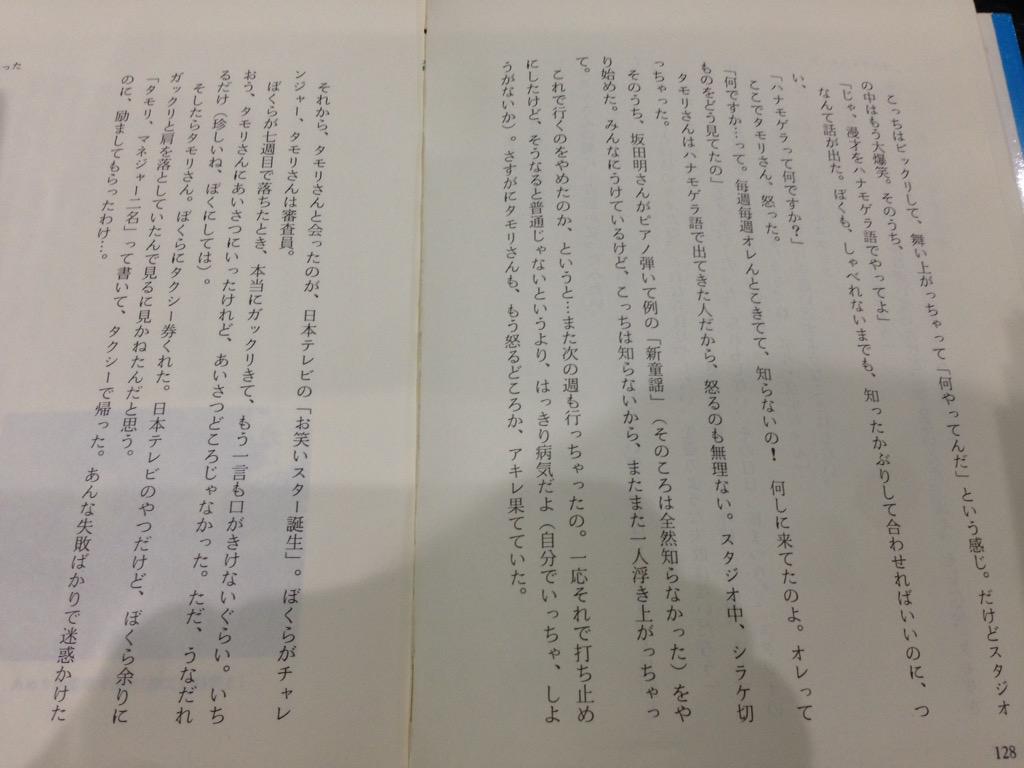 こっちはビックリして、舞い上がっちゃって「何やってんだ」という感じ。だけどスタジオ
の中はもう大爆笑。そのうち、
「じゃ、漫才をハナモゲラ語でやってよ」
なんて話が出た。ぼくも、しゃべれないまでも、知ったかぶりして合わせればいいのに、つ
い、
「ハナモゲラって何ですか?」
ここでタモリさん、怒った。
「何ですか…って。毎週毎週オレんとこきてて、知らないの! 何しに来てたのよ。オレって
ものをどう見てたの」
タモリさんはハナモゲラ語で出てきた人だから、怒るのも無理ない。スタジオ中、シラケ切
っちゃった。
そのうち、坂田明さんがピアノ弾いて例の「新童謡」(そのころは全然知らなかった)をや
り始めた。みんなにうけているけど、こっちは知らないから、またまた一人浮き上がっちゃっ
て。
これで行くのをやめたのか、というと…また次の週も行っちゃったの。一応それで打ち止め
にしたけど、そうなると普通じゃないというより、はっきり病気だよ(自分でいっちゃ、しよ
うがないか)。さすがにタモリさんも、もう怒るどころか、アキレ果てていた。
128
それから、タモリさんと会ったのが、日本テレビの「お笑いスター誕生」。ぼくらがチャレ
ンジャー、タモリさんは審査員。
ぼくらが七週目で落ちたとき、本当にガックリきて、もう一言も口がきけないぐらい。いち
おう、タモリさんにあいさつにいったけれど、あいさつどころじゃなかった。ただ、うなだれ
るだけ(珍しいね、ぼくにしては)。
そしたらタモリさん。ぼくらにタクシー券くれた。日本テレビのやつだけど、ぼくら余りに
ガックリと肩を落としていたんで見るに見かねたんだと思う。
「タモリ、マネジャー二名」って書いて、タクシーで帰った。あんな失敗ばかりで迷惑かけた
のに、励ましてもらったわけ…。
った